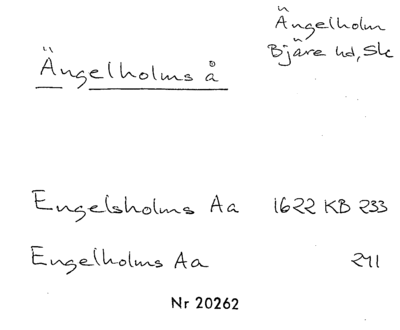 Ängelholm
Bjäre hd, Sk
Ängelholms å
Engelsholms Aa 1622 KB 233
Engelholms Aa 241
Nr 20262